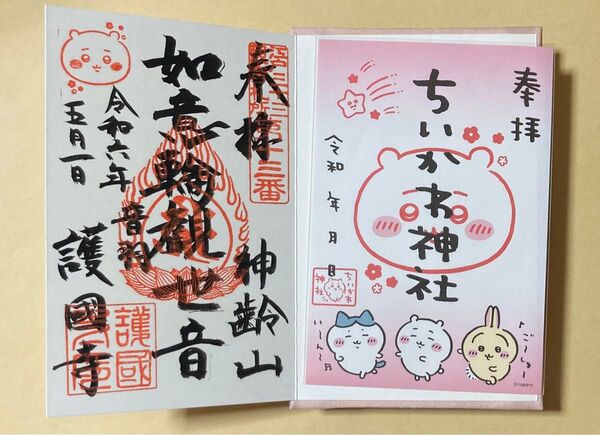 奉拝
ちいかわ神社
令和 年 月 日
ちいかわ
神社
ごーしゅ〜
いーん〜
©nagano
奉拝
神齢山
如意輪観世音
令和六年
五月一日
音羽
護國寺
護國